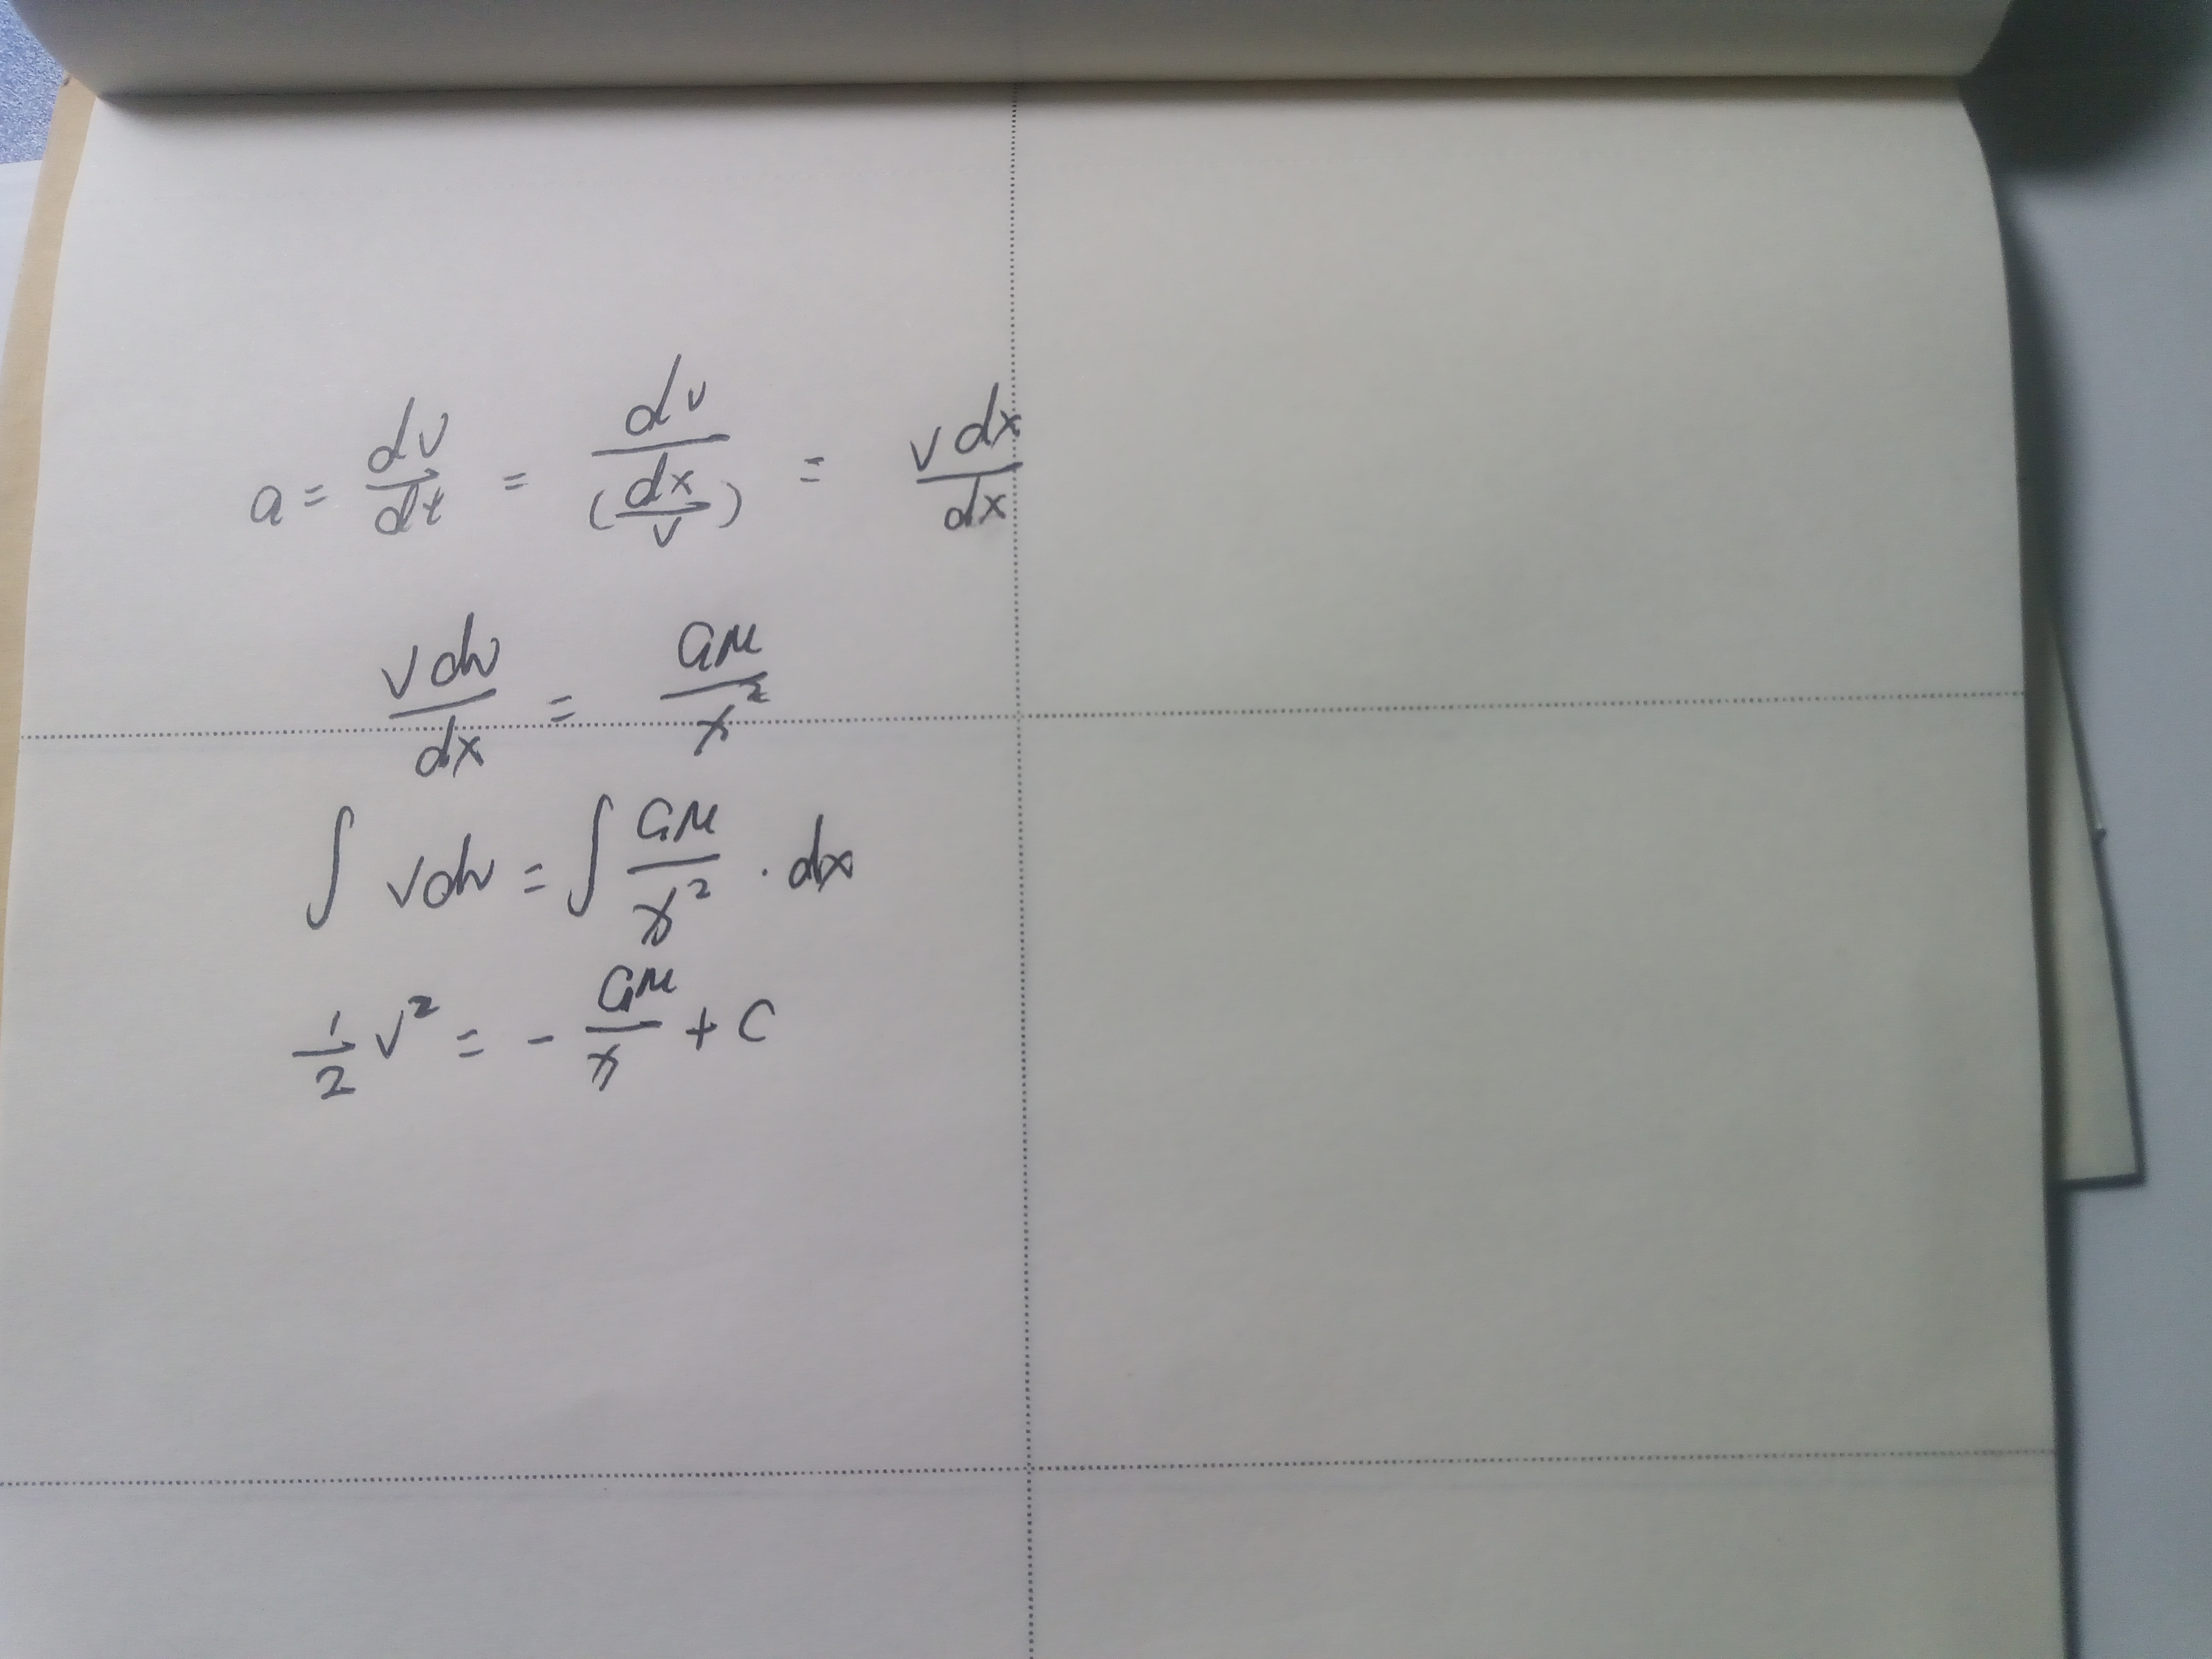 a = dv/dt = dv/(dx/v) = v dx/dx
v dv/dx = GM/x²
∫ v dv = ∫ GM/x² · dx
1/2 v² = - GM/x + C